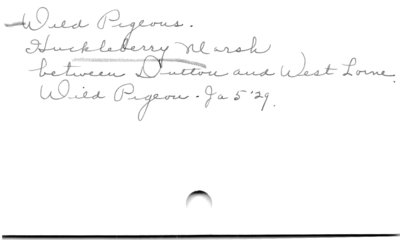 Wild Pigeons.
Huckleberry Marsh
between Dutton and West Lorne.
Wild Pigeon. Ja 5 '29.